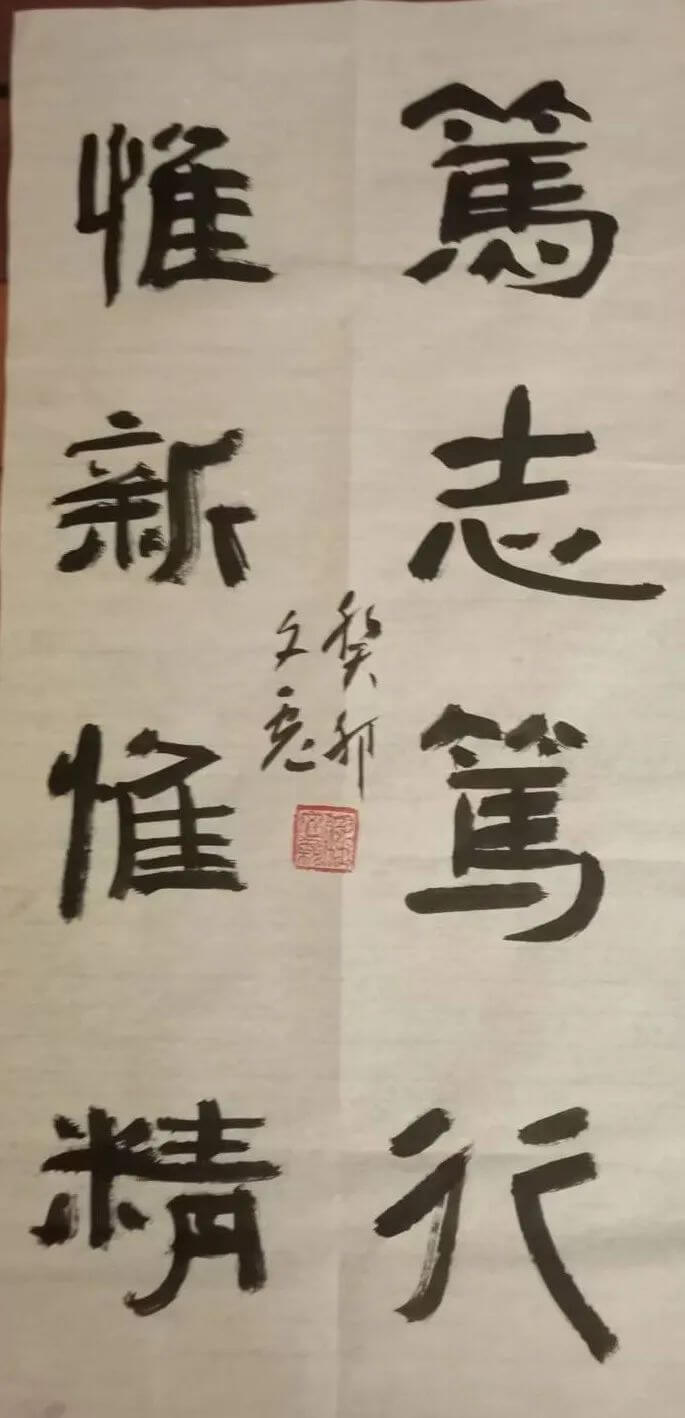 篤志篤行
惟新惟精
癸卯
文